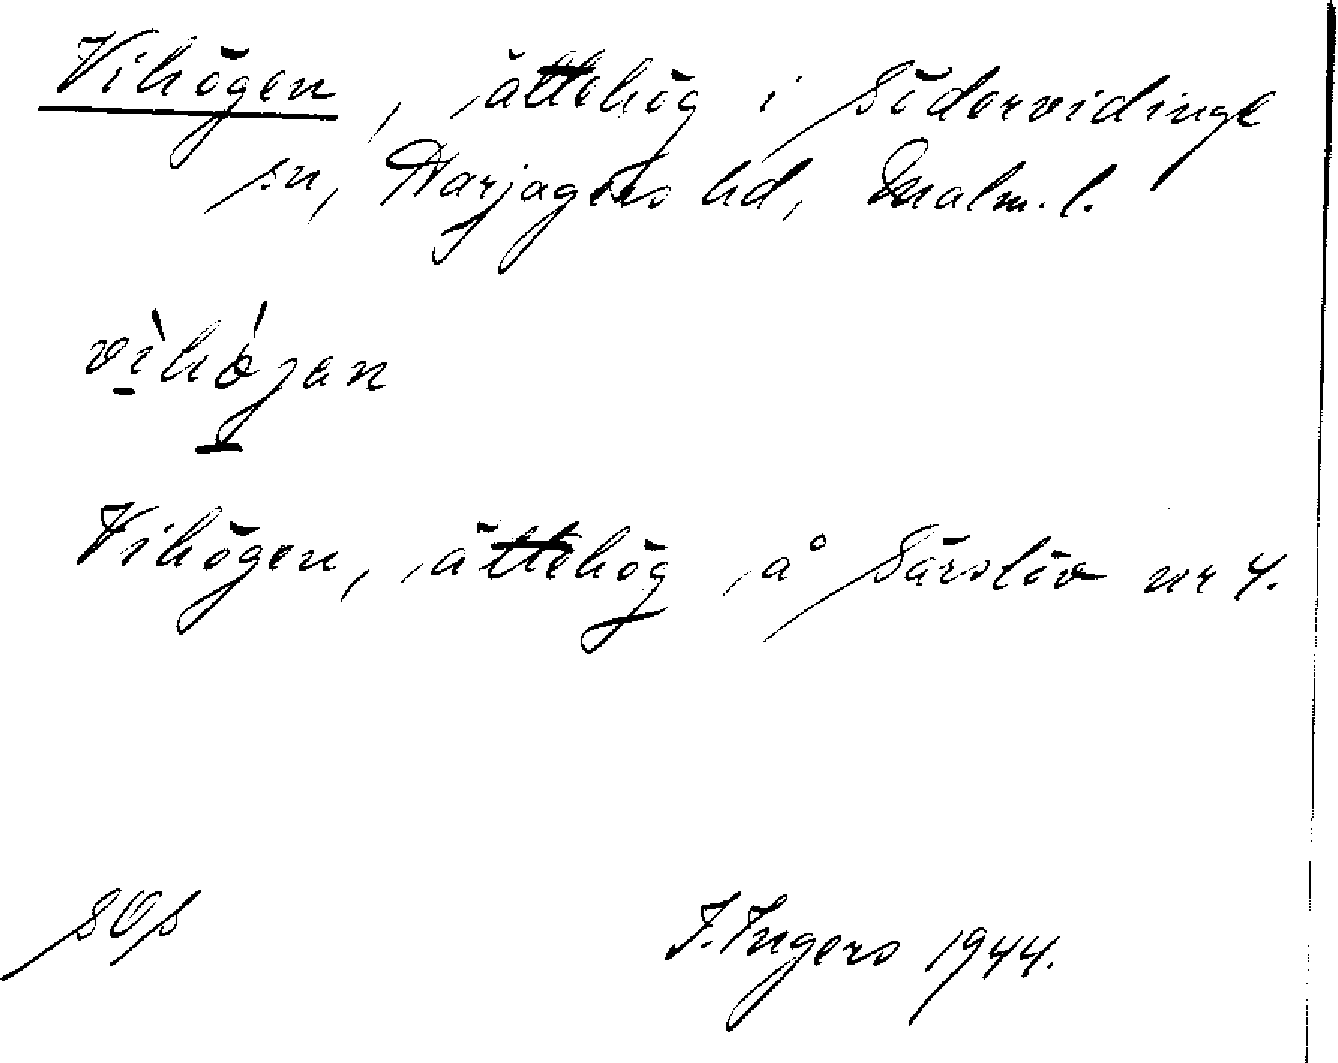 Vihögen, ättehög i Södervidinge
sn, Harjagers hd, Malm. l.
vìhǿjan
Vihögen, ättehög, å Särslöv nr 4.
SOs
I. Ingers 1944.